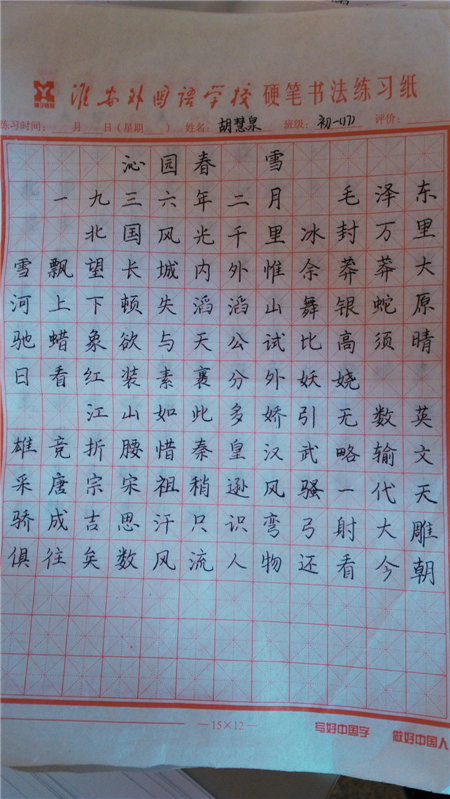 淮安外国语学校 硬笔书法练习纸
练习时间: 月 日（星期 ） 姓名: 胡慧泉 班级: 初一(17) 评价:
沁园春 雪
一九三六年二月 毛泽东
北国风光千里冰封万里
雪飘望长城内外惟余莽莽大
河上下顿失滔滔山舞银蛇原
驰蜡象欲与天公试比高须晴
日看红装素裹分外妖娆
江山如此多娇引无数英
雄竞折腰惜秦皇汉武略输文
采唐宗宋祖稍逊风骚一代天
骄成吉思汗只识弯弓射大雕
俱往矣数风流人物还看今朝
—15×12—
写好中国字 做好中国人